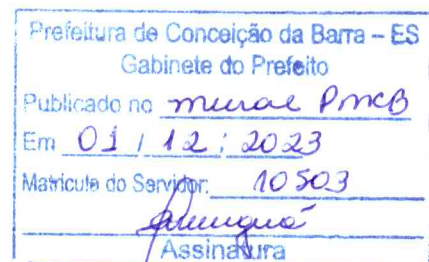 Prefeitura de Conceição da Barra – ES
Gabinete do Prefeito
Publicado no mural PMCB
Em 01 / 12 / 2023
Matricula do Servidor: 10503
Assinatura